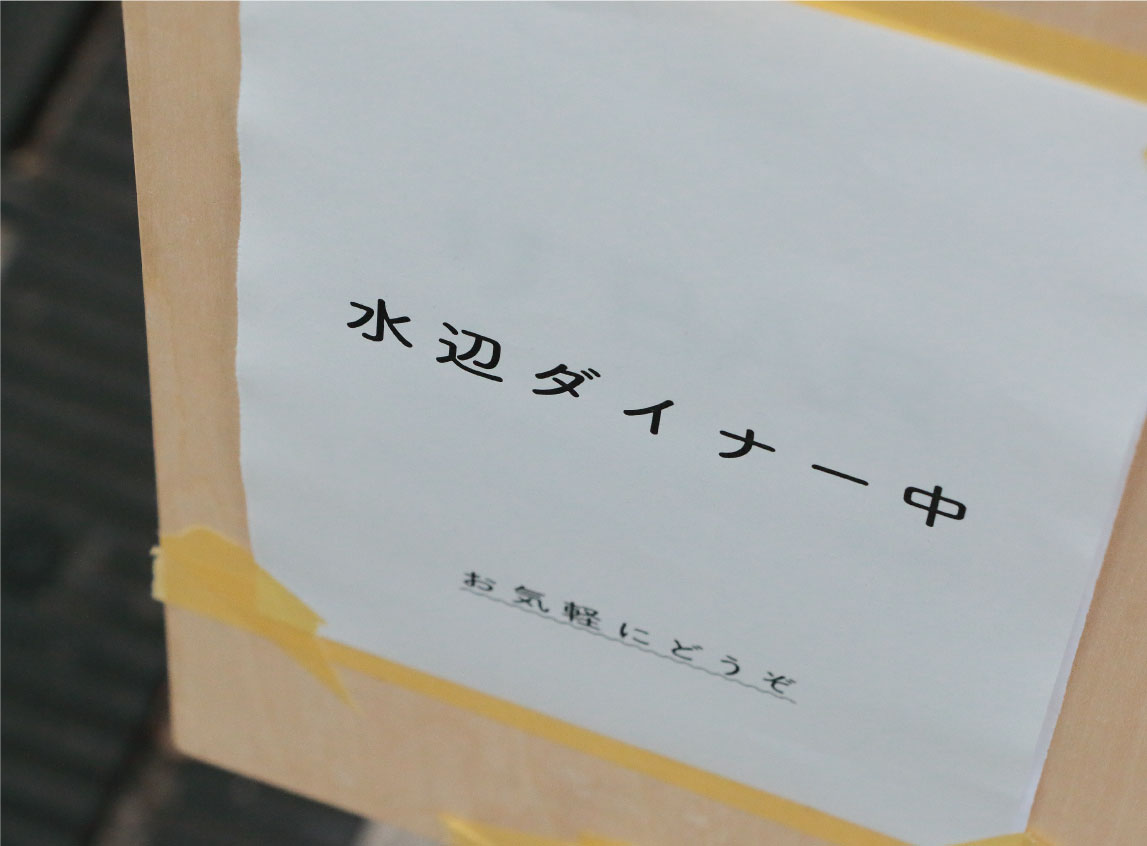 水辺ダイナー中
お気軽にどうぞ